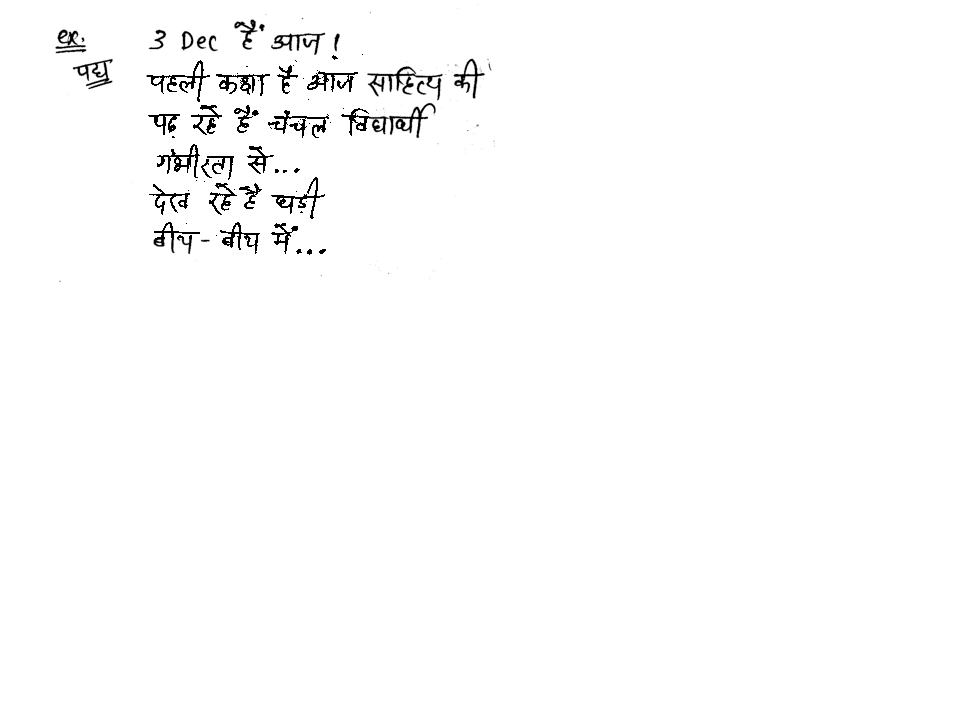 ex. 3 Dec हैं आज!
पद्य पहली कक्षा है आज साहित्य की
पढ़ रहे हैं चंचल विद्यार्थी
गंभीरता से...
देख रहे है घड़ी
बीच - बीच में...